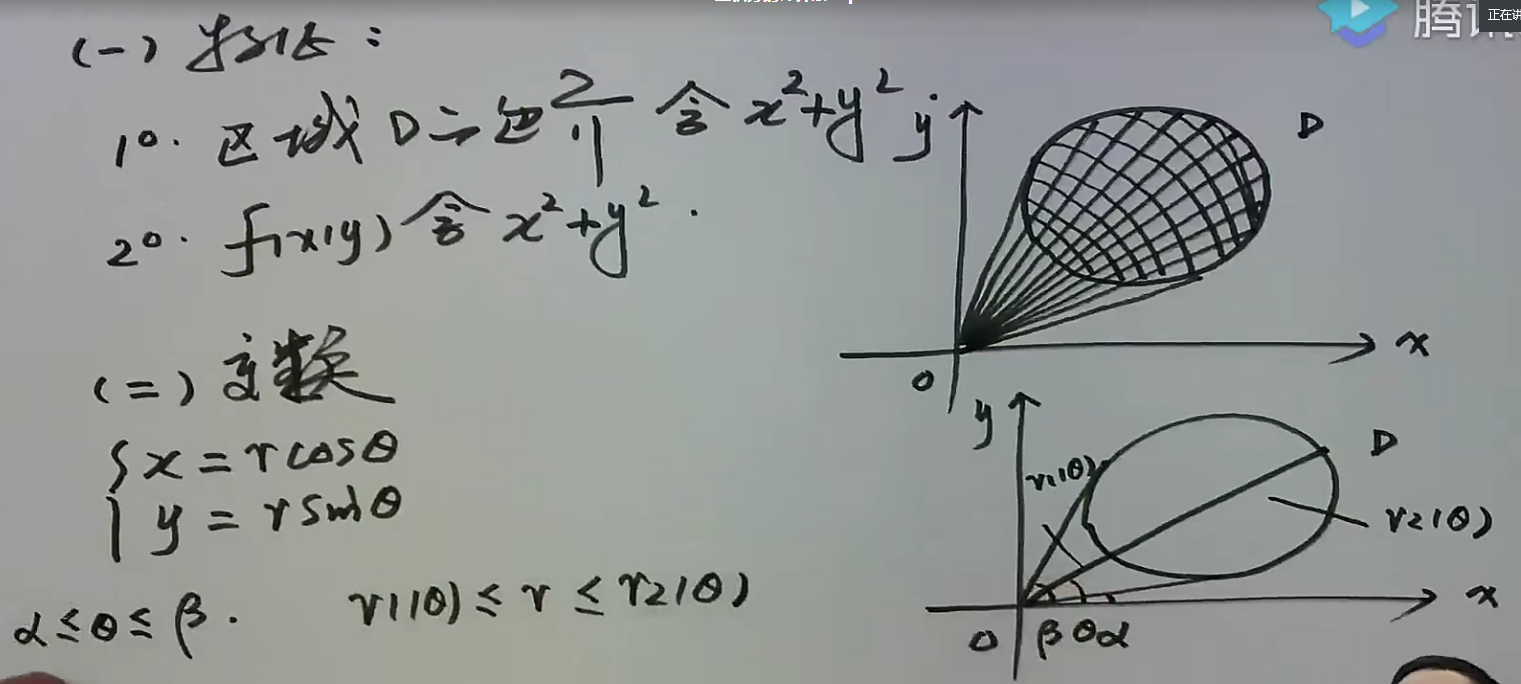 (一) 特征:
1°. 区域D之边界含 x²+y²
2°. f(x,y)含 x²+y².
(二) 变换
{ x = r cosθ
y = r sinθ
α ≤ θ ≤ β. r₁(θ) ≤ r ≤ r₂(θ)
y
D
x
0
y
D
r₁(θ)
r₂(θ)
x
0 β θ α
腾讯
正在讲